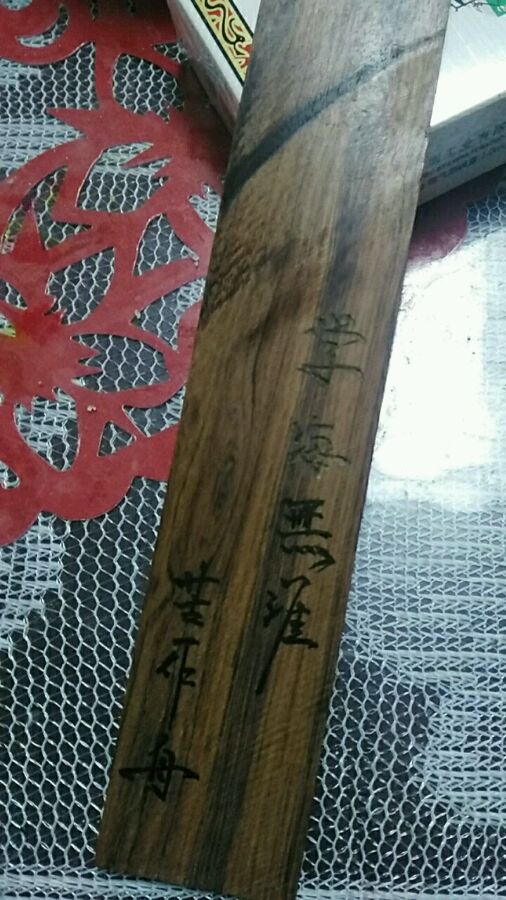 学海無涯
苦作舟